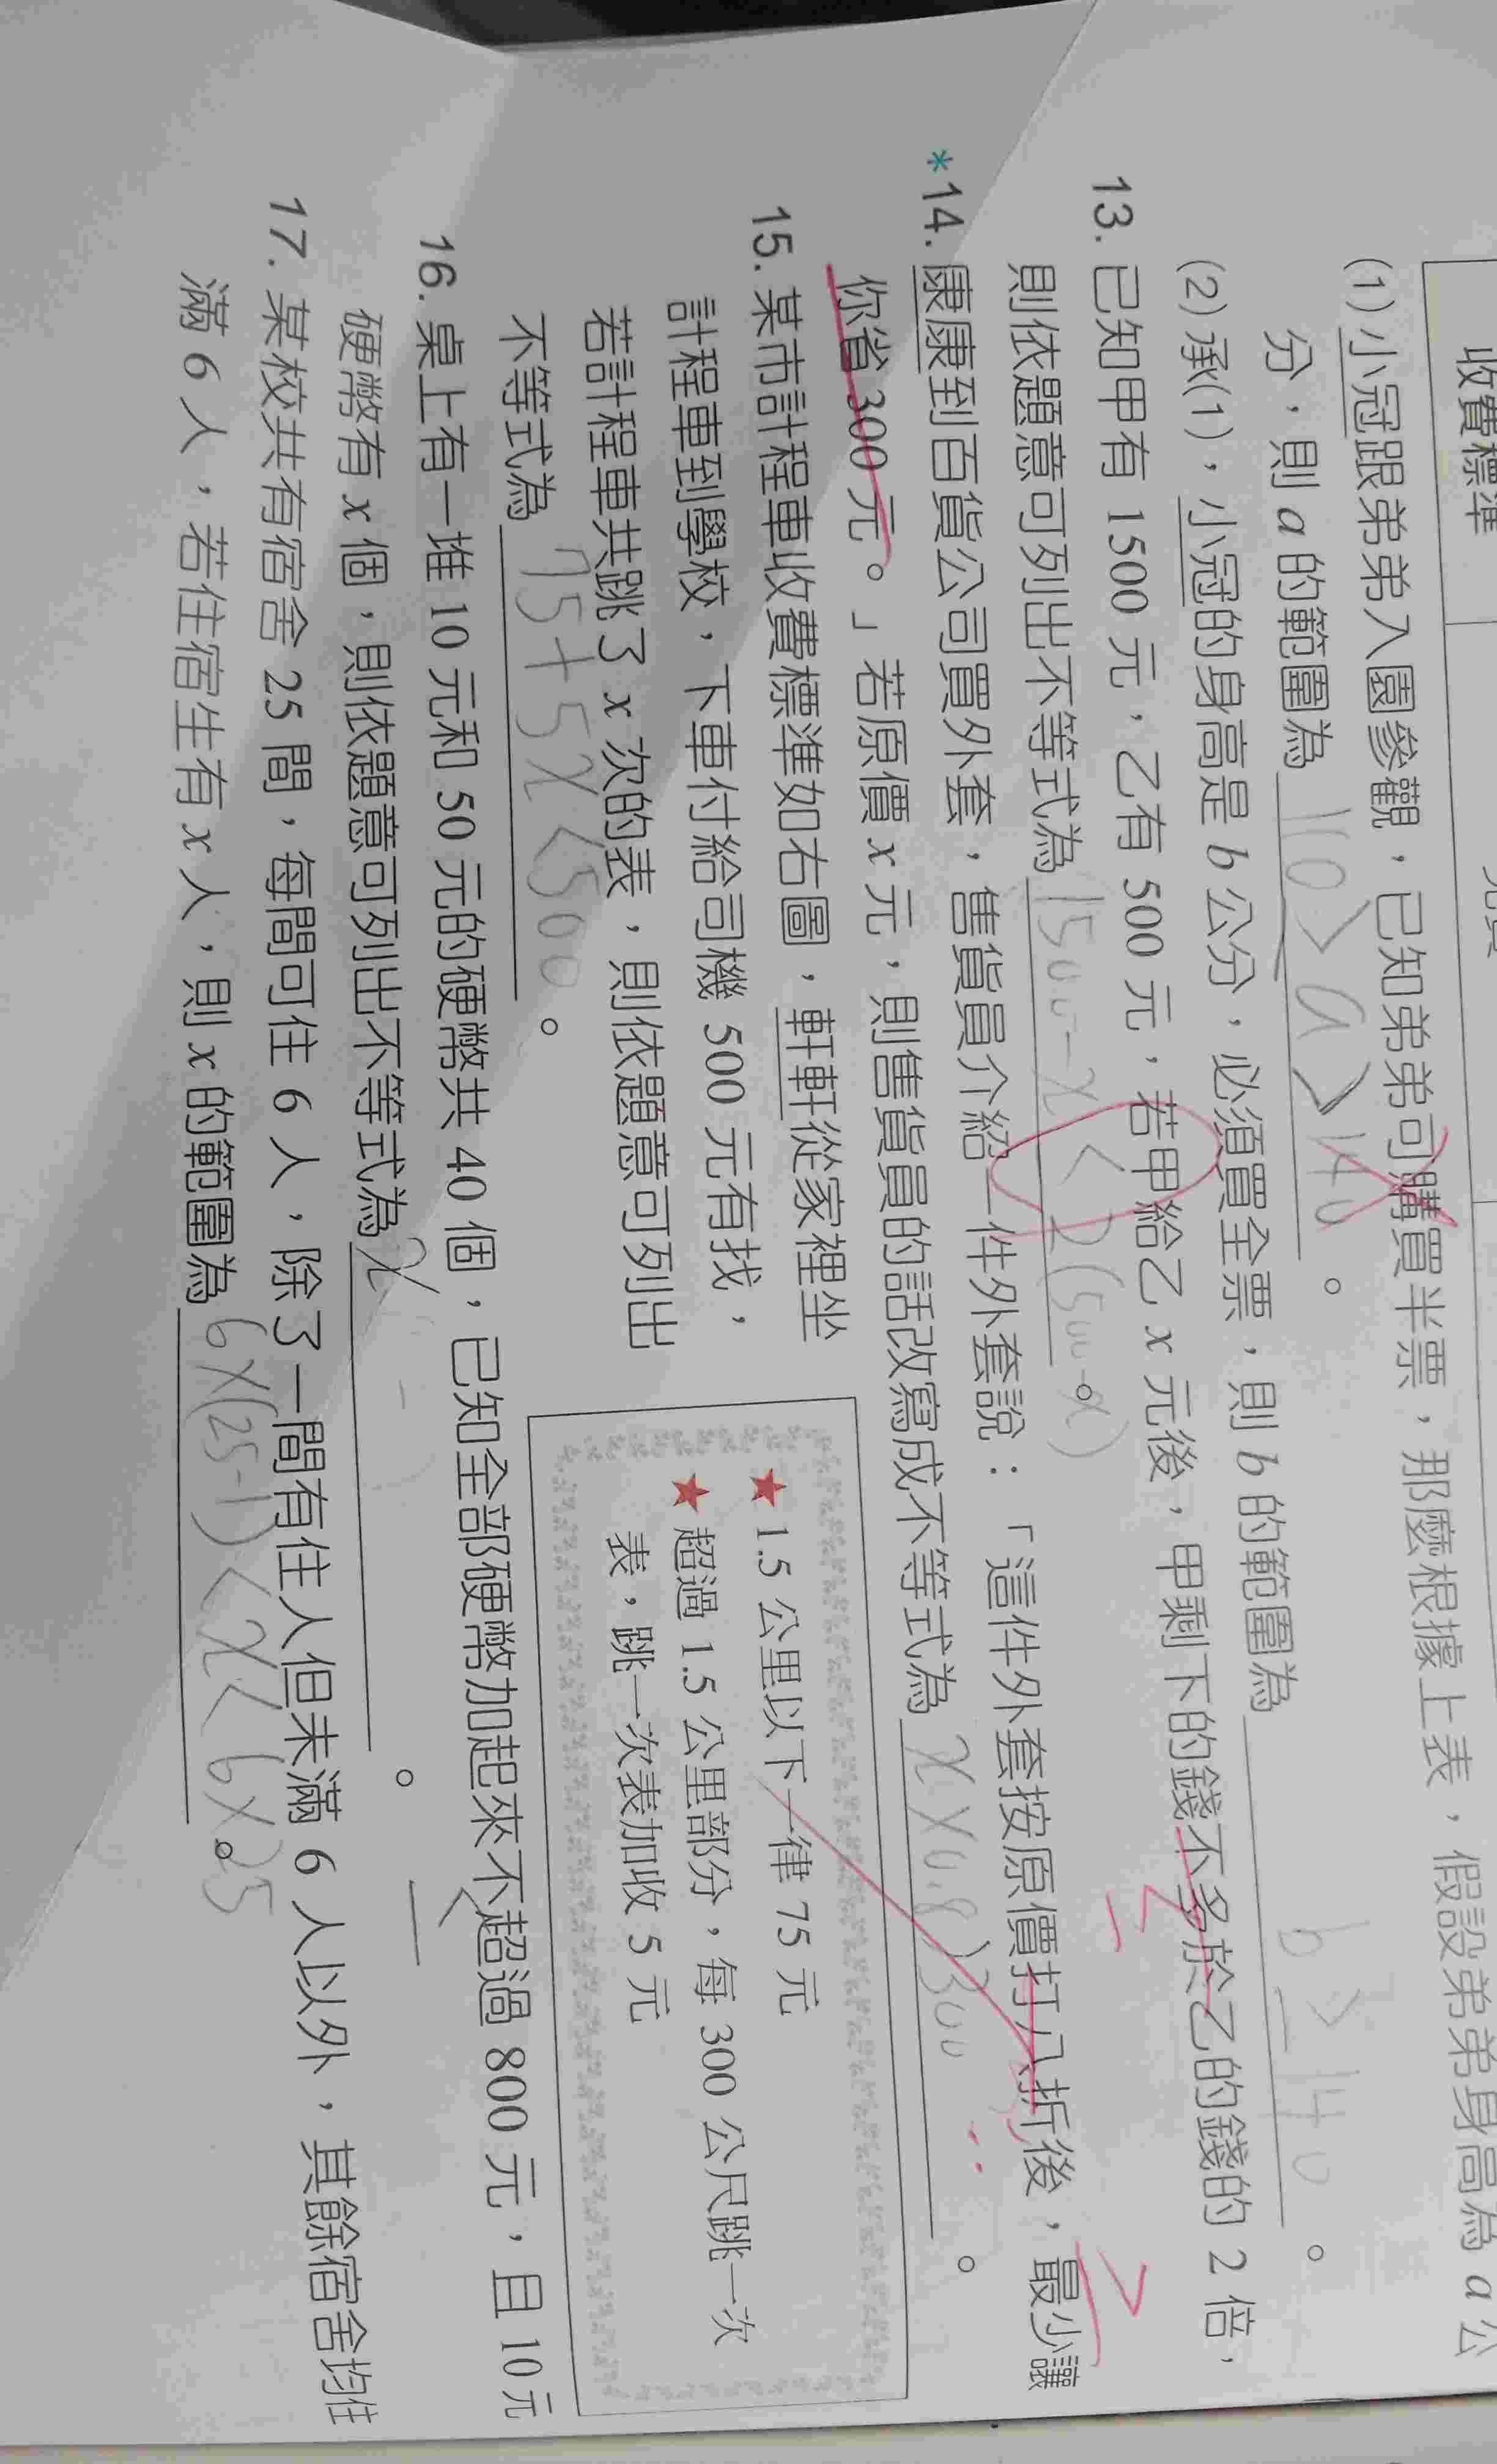 收費標準
(1) 小冠跟弟弟入園參觀，已知弟弟可購買半票，那麼根據上表，假設弟弟身高為 a 公
分，則 a 的範圍為 110>a>140。
(2) 承(1)，小冠的身高是 b 公分，必須買全票，則 b 的範圍為 b≥140。
13. 已知甲有 1500 元，乙有 500 元，若甲給乙 x 元後，甲剩下的錢不多於乙的錢的 2 倍，
≤
則依題意可列出不等式為 1500-x<2(500-x)。
*14. 康康到百貨公司買外套，售貨員介紹一件外套說：「這件外套按原價打八折後，最少讓
≥
你省 300 元。」若原價 x 元，則售貨員的話改寫成不等式為 x×0.8>300。
15. 某市計程車收費標準如右圖，軒軒從家裡坐
計程車到學校，下車付給司機 500 元有找，
若計程車共跳了 x 次的表，則依題意可列出
不等式為 75+5x<500。
★ 1.5 公里以下一律 75 元
★ 超過 1.5 公里部分，每 300 公尺跳一次
表，跳一次表加收 5 元
16. 桌上有一堆 10 元和 50 元的硬幣共 40 個，已知全部硬幣加起來不超過 800 元，且 10 元
≤
硬幣有 x 個，則依題意可列出不等式為 x。
17. 某校共有宿舍 25 間，每間可住 6 人，除了一間有住人但未滿 6 人以外，其餘宿舍均住
滿 6 人，若住宿生有 x 人，則 x 的範圍為 6×(25-1)<x<6×25。